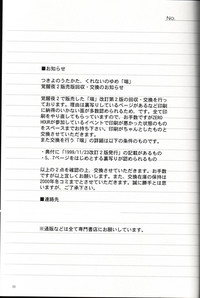 No.
■お知らせ
つきよのうたかた、くれないのゆめ「鳴」
覚醒夜2販売版回収・交換のお知らせ
覚醒夜2で販売した「鳴」改訂第2版の回収・交換を行っております。理由は裏写りしているページがあるなど印刷に納得のいかない面が多数認められるためです。全て印刷をやり直してもらっていますので、お手数ですがZERO
HOURが参加しているイベントで印刷が悪かった状態のものをスペースまでお持ち下さい。印刷がちゃんとしたものと交換させていただきます。
覚醒夜2で行う「鳴」の詳細は以下の条件のものです。
・奥付に「1999/11/23改訂2版発行」の記載があるもの
・5、7ページをはじめとする裏写りが認められるもの
以上の2点を確認の上、交換させていただきます。お手数ですが以上よしくお願いします。また、交換在庫の保持は2000年をコミまでとさせていただきます。誠に勝手とは思いますが、ご了承下さい。
■連絡先
※通販などは全て専門書店にお願いしています。